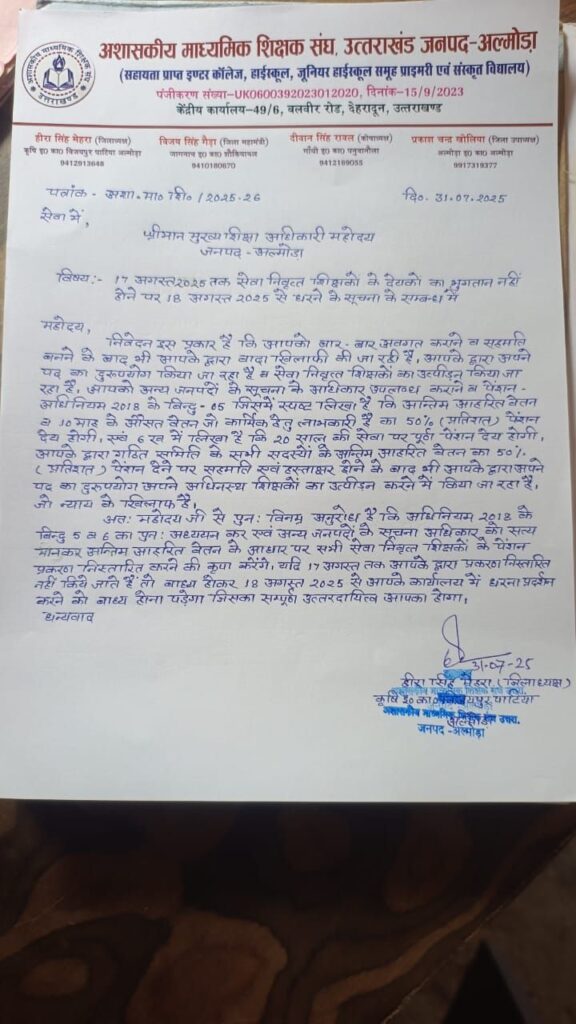 अशासकीय माध्यमिक शिक्षक संघ, उत्तराखंड जनपद-अल्मोड़ा
(सहायता प्राप्त इण्टर कॉलेज, हाईस्कूल, जूनियर हाईस्कूल समूह प्राइमरी एवं संस्कृत विद्यालय)
पंजीकरण संख्या-UK0600392023012020, दिनांक-15/9/2023
केंद्रीय कार्यालय-49/6, बलवीर रोड, देहरादून, उत्तराखण्ड
हीरा सिंह मेहरा (जिलाध्यक्ष) विजय सिंह गैड़ा (जिला महामंत्री) दीवान सिंह रावल (कोषाध्यक्ष) प्रकाश चन्द्र खोलिया (जिला उपाध्यक्ष)
कृषि इ0 का0 विजयपुर पाटिया अल्मोड़ा जागनाथ इ0 का0 गाँधी इ0 का0 पनुवानौला अल्मोड़ा इ0 का0 अल्मोड़ा
9412913648 9410180670 9412169055 9917319377
पत्रांक - अशा. मा० शि० / 2025-26 दि० 31.07.2025
सेवा में,
श्रीमान मुख्य शिक्षा अधिकारी महोदय
जनपद - अल्मोड़ा
विषय:- 17 अगस्त 2025 तक सेवा निवृत्त शिक्षकों के देयकों का भुगतान नहीं
होने पर 18 अगस्त 2025 से धरने के सूचना के सम्बन्ध में
महोदय,
निवेदन इस प्रकार है कि आपको बार-बार अवगत कराने व सहमति
बनने के बाद भी आपके द्वारा वादा खिलाफी की जा रही है, आपके द्वारा अपने
पद का दुरूपयोग किया जा रहा है व सेवा निवृत्त शिक्षकों का उत्पीड़न किया जा
रहा है, आपको अन्य जनपदों के सूचना के अधिकार उपलब्ध कराने व पेंशन-
अधिनियम 2018 के बिन्दु - 05 जिसमें स्पष्ट लिखा है कि अन्तिम आहरित वेतन
व 10 माह के औसत वेतन जो कार्मिक हेतु लाभकारी है का 50% (प्रतिशत) पेंशन
देय होगी, एवं 6 ख में लिखा है कि 20 साल की सेवा पर पूर्ण पेंशन देय होगी,
आपके द्वारा गठित समिति के सभी सदस्यों के अन्तिम आहरित वेतन का 50%
(प्रतिशत) पेंशन देने पर सहमति एवं हस्ताक्षर होने के बाद भी आपके द्वारा अपने
पद का दुरूपयोग अपने अधिनस्थ शिक्षकों का उत्पीड़न करने में किया जा रहा है,
जो न्याय के खिलाफ है,
अतः महोदय जी से पुनः विनम्र अनुरोध है कि अधिनियम 2018 के
बिन्दु 5 व 6 का पुनः अध्ययन कर एवं अन्य जनपदों के सूचना अधिकार को सत्य
मानकर अन्तिम आहरित वेतन के आधार पर सभी सेवा निवृत्त शिक्षकों के पेंशन
प्रकरण निस्तारित करने की कृपा करेंगे, यदि 17 अगस्त तक आपके द्वारा प्रकरण निस्तारित
नहीं किये जाते हैं तो बाध्य होकर 18 अगस्त 2025 से आपके कार्यालय में धरना प्रदर्शन
करने को बाध्य होना पड़ेगा जिसका सम्पूर्ण उत्तरदायित्व आपका होगा,
धन्यवाद
31-07-25
हीरा सिंह मेहरा (जिलाध्यक्ष)
कृषि इ० का० पाटिया
अशासकीय माध्यमिक शिक्षक संघ उत्तरा.
जनपद -अल्मोड़ा
अशासकीय माध्यमिक शिक्षक संघ
उत्तराखण्ड